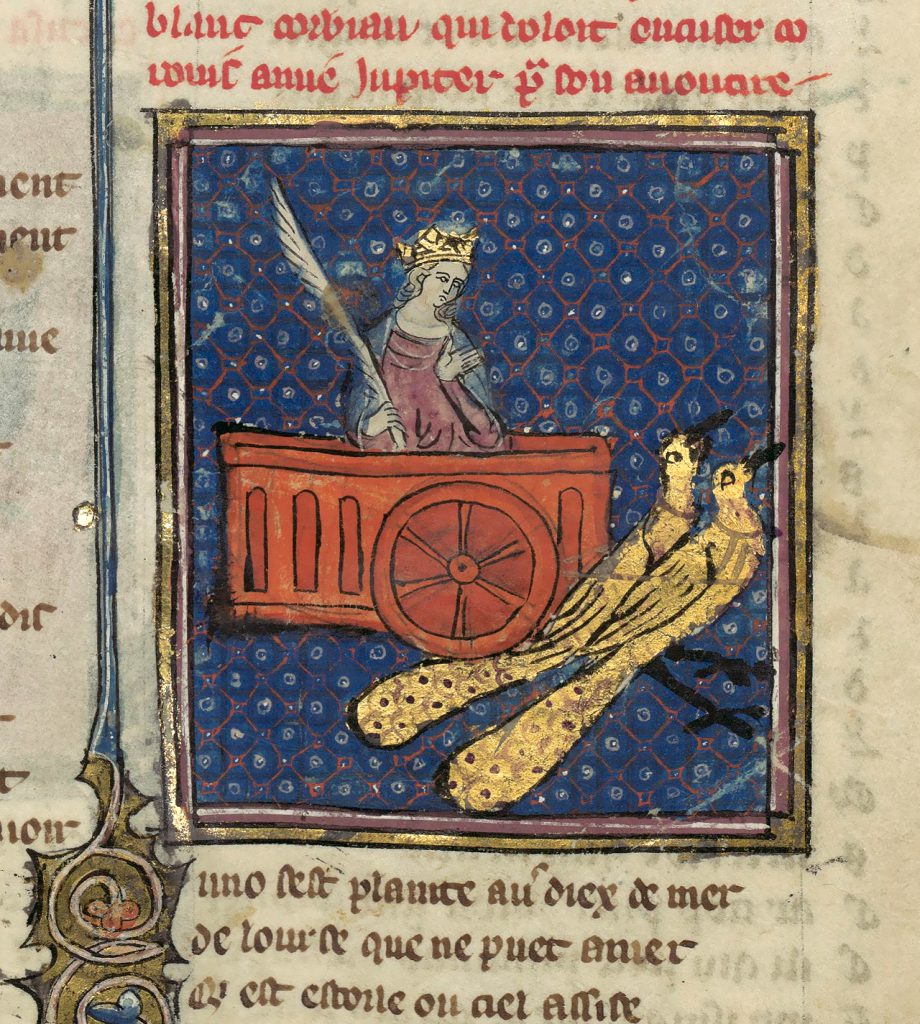 blanc corbiau qui voloit encuser co
ronis amie Jupiter pͬ son auoutire
ment
ment
dit
uno sest plainte aus diex de mer
de lourse que ne puet amer
Qi est estoile ou ciel assise